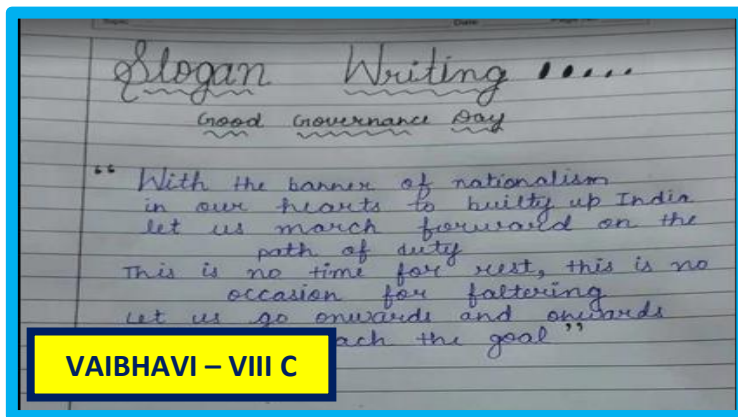 Date
Slogan Writing .....
Good Governance Day
“ With the banner of nationalism
in our hearts to builty up India
let us march forward on the
path of duty
This is no time for rest, this is no
occasion for faltering
Let us go onwards and onwards
ach the goal ”
VAIBHAVI – VIII C